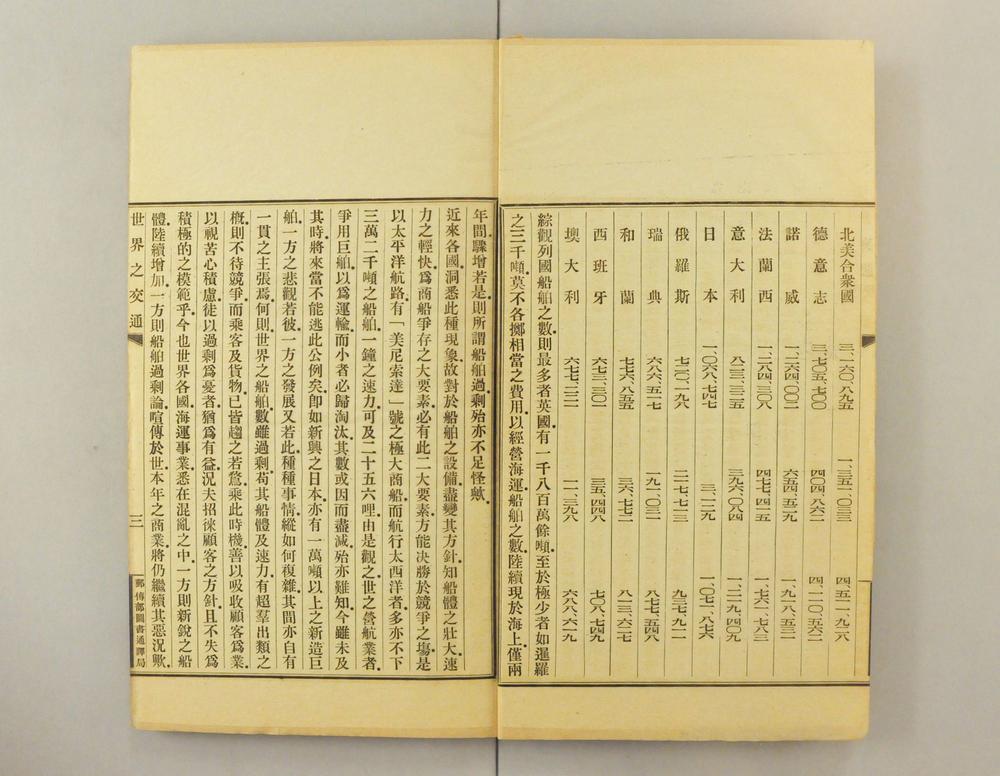 北美合衆國　三、一六〇、八九五　一、三五一、〇三三　四、五一一、九二八
德意志　三、七〇五、七〇〇　四〇四、八六二　四、一一〇、五六二
諾威　一、二六四、〇〇二　六五四、五二九　一、九一八、五三一
法蘭西　一、二八四、三〇八　四七七、四一五　一、七六一、七八三
意大利　八二三、三二五　三九六、〇八四　一、二一九、四〇九
日本　一、〇六八、七四七　三、一二九　一、〇七一、八七六
俄羅斯　七二〇、一九八　二一七、七二三　九三七、九二一
瑞典　六八六、五一七　一九一、〇三一　八七七、五四八
和蘭　七七六、八五五　三六、七七二　八一三、六二七
西班牙　六七三、三〇一　三五、四四八　七〇八、七四九
墺大利　六七七、二三一　一一、三九八　六八八、六二九
綜觀列國船舶之數則最多者英國有一千八百萬餘噸至於極少者如暹羅
之三千噸莫不各擲相當之費用以經營海運船舶之數陸續現於海上僅兩
年間驟增若是則所謂船舶過剩殆亦不足怪歟
近來各國洞悉此種現象故對於船舶之設備盡變其方針知船體之壯大速
力之輕快爲商船爭存之大要素必有此二大要素方能决勝於競爭之塲是
以太平洋航路有「美尼索達」號之極大商船而航行大西洋者多亦不下
三萬二千噸之船舶一鐘之速力可及二十五六哩由是觀之世之營航業者
爭用巨舶以爲運輸而小者必歸淘汰其數或因而盡減殆亦難知今雖未及
其時將來當不能逃此公例矣卽如新興之日本亦有一萬噸以上之新造巨
舶一方之悲觀若彼一方之發展又若此種種事情縱如何複雜其間亦自有
一貫之主張焉何則世界之船舶數雖過剩苟其船體及速力有超羣出類之
槪則不待競爭而乘客及貨物已皆趨之若鶩乘此時機善以吸收顧客爲業
以視苦心積慮徒以過剩爲憂者猶爲有益況夫招徠顧客之方針且不失爲
積極的之模範乎今也世界各國海運事業悉在混亂之中一方則新銳之船
體陸續增加一方則船舶過剩論喧傳於世本年之商業將仍繼續其惡況歟
世界之交通　三　郵傳部圖書通譯局